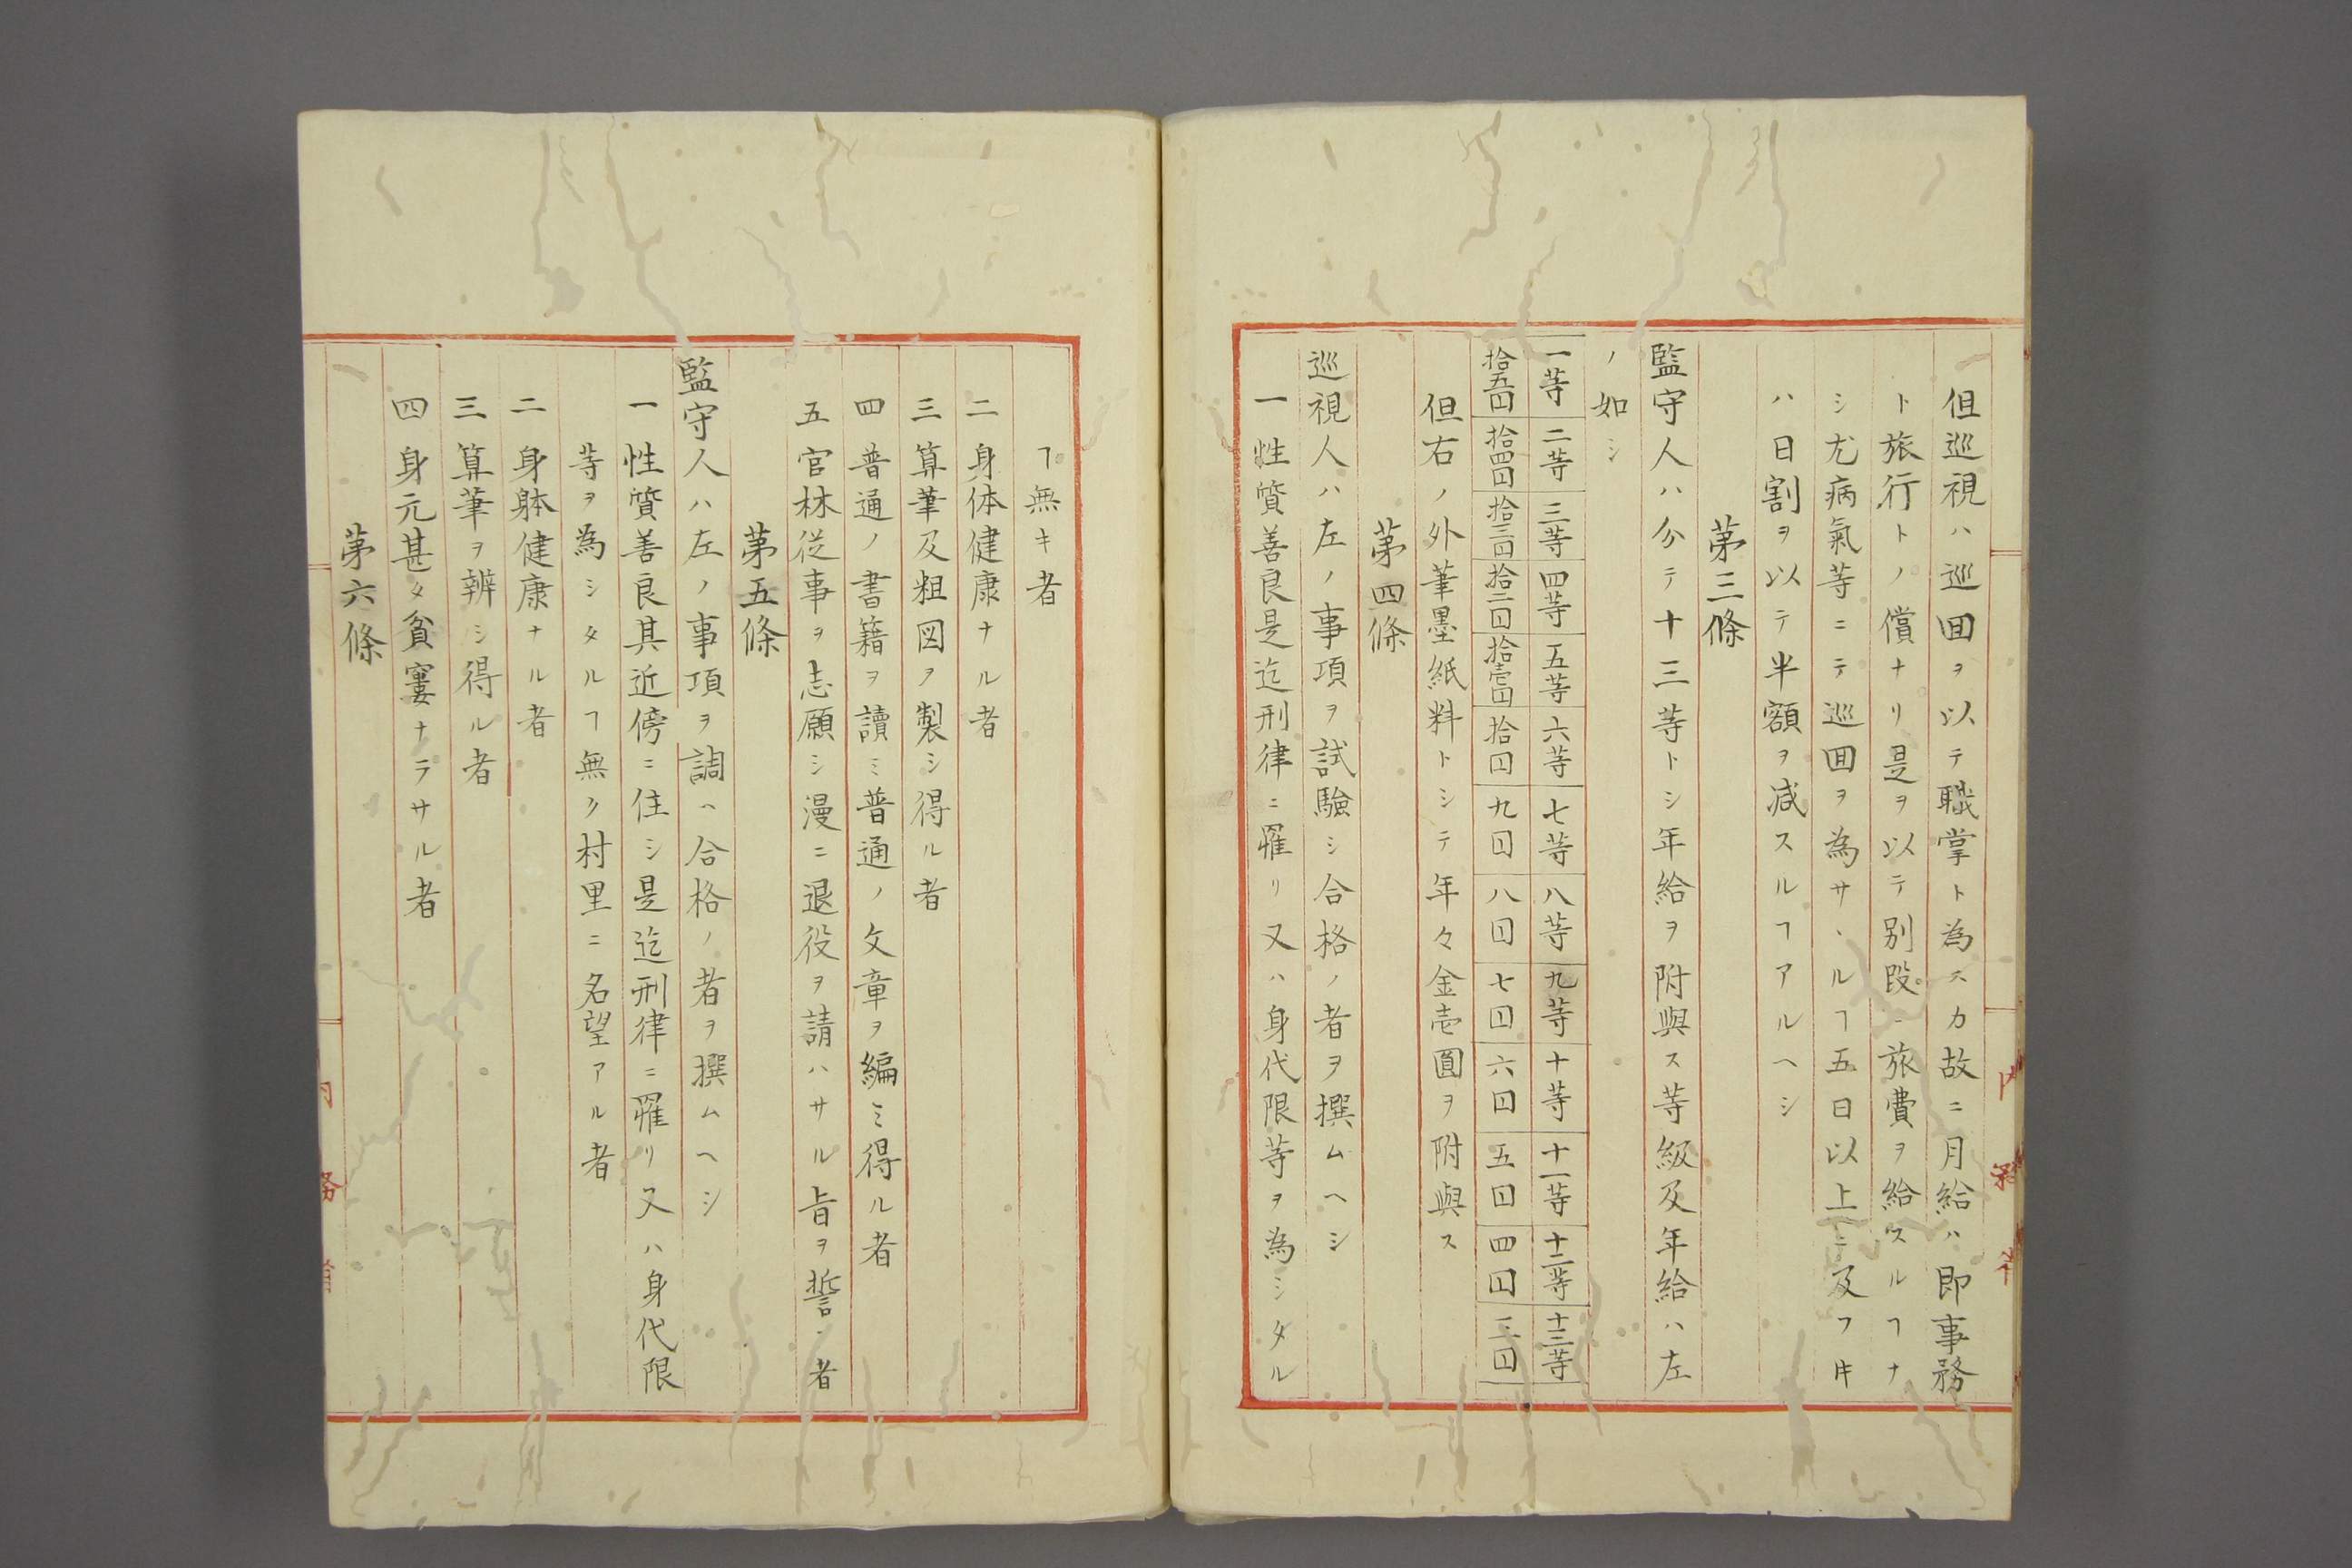 但巡視ハ巡囬ヲ以テ職掌ト為スカ故ニ月給ハ即事務
ト旅行トノ償ナリ是ヲ以テ別段旅費ヲ給スルヿナ
シ尤病氣等ニテ巡囬ヲ為サヽルヿ五日以上ニ及フ㐧
ハ日割ヲ以テ半額ヲ减スルヿアルヘシ
㐧三條
監守人ハ分テ十三等トシ年給ヲ附與ス等級及年給ハ左
ノ如シ
一等 二等 三等 四等 五等 六等 七等 八等 九等 十等 十一等 十二等 十三等
拾五円 拾四円 拾三円 拾二円 拾壱円 拾円 九円 八円 七円 六円 五円 四円 三円
但右ノ外筆墨紙料トシテ年々金壱圓ヲ附與ス
㐧四條
巡視人ハ左ノ事項ヲ試驗シ合格ノ者ヲ撰ムヘシ
一性質善良是迄刑律ニ罹リ又ハ身代限等ヲ為シタル
ヿ無キ者
二身体健康ナル者
三算筆及粗図ヲ製シ得ル者
四普通ノ書籍ヲ讀ミ普通ノ文章ヲ編ミ得ル者
五官林従事ヲ志願シ漫ニ退役ヲ請ハサル旨ヲ誓者
㐧五條
監守人ハ左ノ事項ヲ調ヘ合格ノ者ヲ撰ムヘシ
一性質善良其近傍ニ住シ是迄刑律ニ罹リ又ハ身代限
等ヲ為シタルヿ無ク村里ニ名望アル者
二身躰健康ナル者
三算筆ヲ辨シ得ル者
四身元甚タ貧窶ナラサル者
㐧六條
内務省